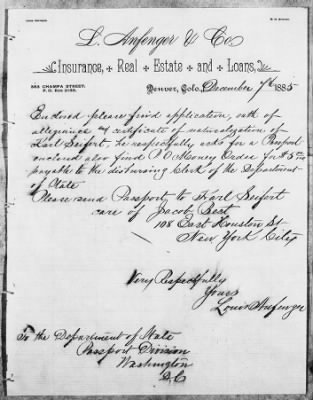 L. Anfenger & Co
Insurance, Real Estate and Loans,
353 CHAMPA STREET.
P. O. Box 2135.
Denver, Colo. December 7th 1885
Enclosed please find application, oath of
allegiance & certificate of naturalization of
Karl Seifert, he respectfully asks for a Passport
enclosed also find P O Money Order for $5 00/100
payable to the disbursing Clerk of the Department
of State
Please send Passport to Karl Seifert
care of Jacob Best
108 East Houston St
New York City
Very Respectfully
Yours
Louis Anfenger
To the Department of State
Passport Division
Washington
D.C